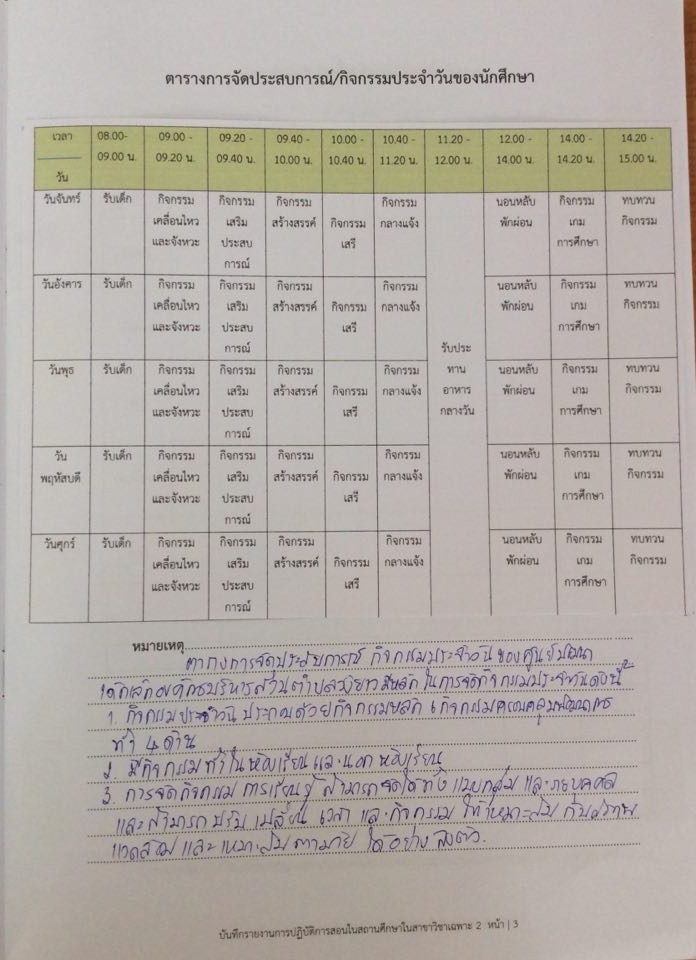 ตารางการจัดประสบการณ์/กิจกรรมประจำวันของนักศึกษา
เวลา 08.00- 09.00 - 09.20 - 09.40 - 10.00 - 10.40 - 11.20 - 12.00 - 14.00 - 14.20 -
09.00 น. 09.20 น. 09.40 น. 10.00 น. 10.40 น. 11.20 น. 12.00 น. 14.00 น. 14.20 น. 15.00 น.
วัน
วันจันทร์ รับเด็ก กิจกรรม กิจกรรม กิจกรรม กิจกรรม นอนหลับ กิจกรรม ทบทวน
เคลื่อนไหว เสริม สร้างสรรค์ กิจกรรม กลางแจ้ง พักผ่อน เกม กิจกรรม
และจังหวะ ประสบ เสรี การศึกษา
การณ์
วันอังคาร รับเด็ก กิจกรรม กิจกรรม กิจกรรม กิจกรรม นอนหลับ กิจกรรม ทบทวน
เคลื่อนไหว เสริม สร้างสรรค์ กิจกรรม กลางแจ้ง พักผ่อน เกม กิจกรรม
และจังหวะ ประสบ เสรี การศึกษา
การณ์ รับประ
วันพุธ รับเด็ก กิจกรรม กิจกรรม กิจกรรม กิจกรรม ทาน นอนหลับ กิจกรรม ทบทวน
เคลื่อนไหว เสริม สร้างสรรค์ กิจกรรม กลางแจ้ง อาหาร พักผ่อน เกม กิจกรรม
และจังหวะ ประสบ เสรี กลางวัน การศึกษา
การณ์
วัน รับเด็ก กิจกรรม กิจกรรม กิจกรรม กิจกรรม นอนหลับ กิจกรรม ทบทวน
พฤหัสบดี เคลื่อนไหว เสริม สร้างสรรค์ กิจกรรม กลางแจ้ง พักผ่อน เกม กิจกรรม
และจังหวะ ประสบ เสรี การศึกษา
การณ์
วันศุกร์ รับเด็ก กิจกรรม กิจกรรม กิจกรรม กิจกรรม นอนหลับ กิจกรรม ทบทวน
เคลื่อนไหว เสริม สร้างสรรค์ กิจกรรม กลางแจ้ง พักผ่อน เกม กิจกรรม
และจังหวะ ประสบ เสรี การศึกษา
การณ์
หมายเหตุ
ตารางการจัดประสบการณ์ กิจกรรมประจำวันของศูนย์พัฒนา
เด็กเล็กองค์การบริหารส่วนตำบล มีหลักในการจัดกิจกรรมประจำวันดังนี้
1. กิจกรรมประจำวัน ประกอบด้วยกิจกรรมหลัก 6 กิจกรรมครอบคลุมพัฒนาการ
ทั้ง 4 ด้าน
2. มีกิจกรรมทั้งในห้องเรียนและนอกห้องเรียน
3. การจัดกิจกรรมการเรียนรู้ สามารถจัดได้ทั้งแบบกลุ่ม และรายบุคคล
และสามารถปรับเปลี่ยน เวลา และกิจกรรม ให้เหมาะสมกับสภาพ
แวดล้อม และเหมาะสมตามวัย ได้อย่างลงตัว.
บันทึกรายงานการปฏิบัติการสอนในสถานศึกษาในสาขาวิชาเฉพาะ 2 หน้า | 3